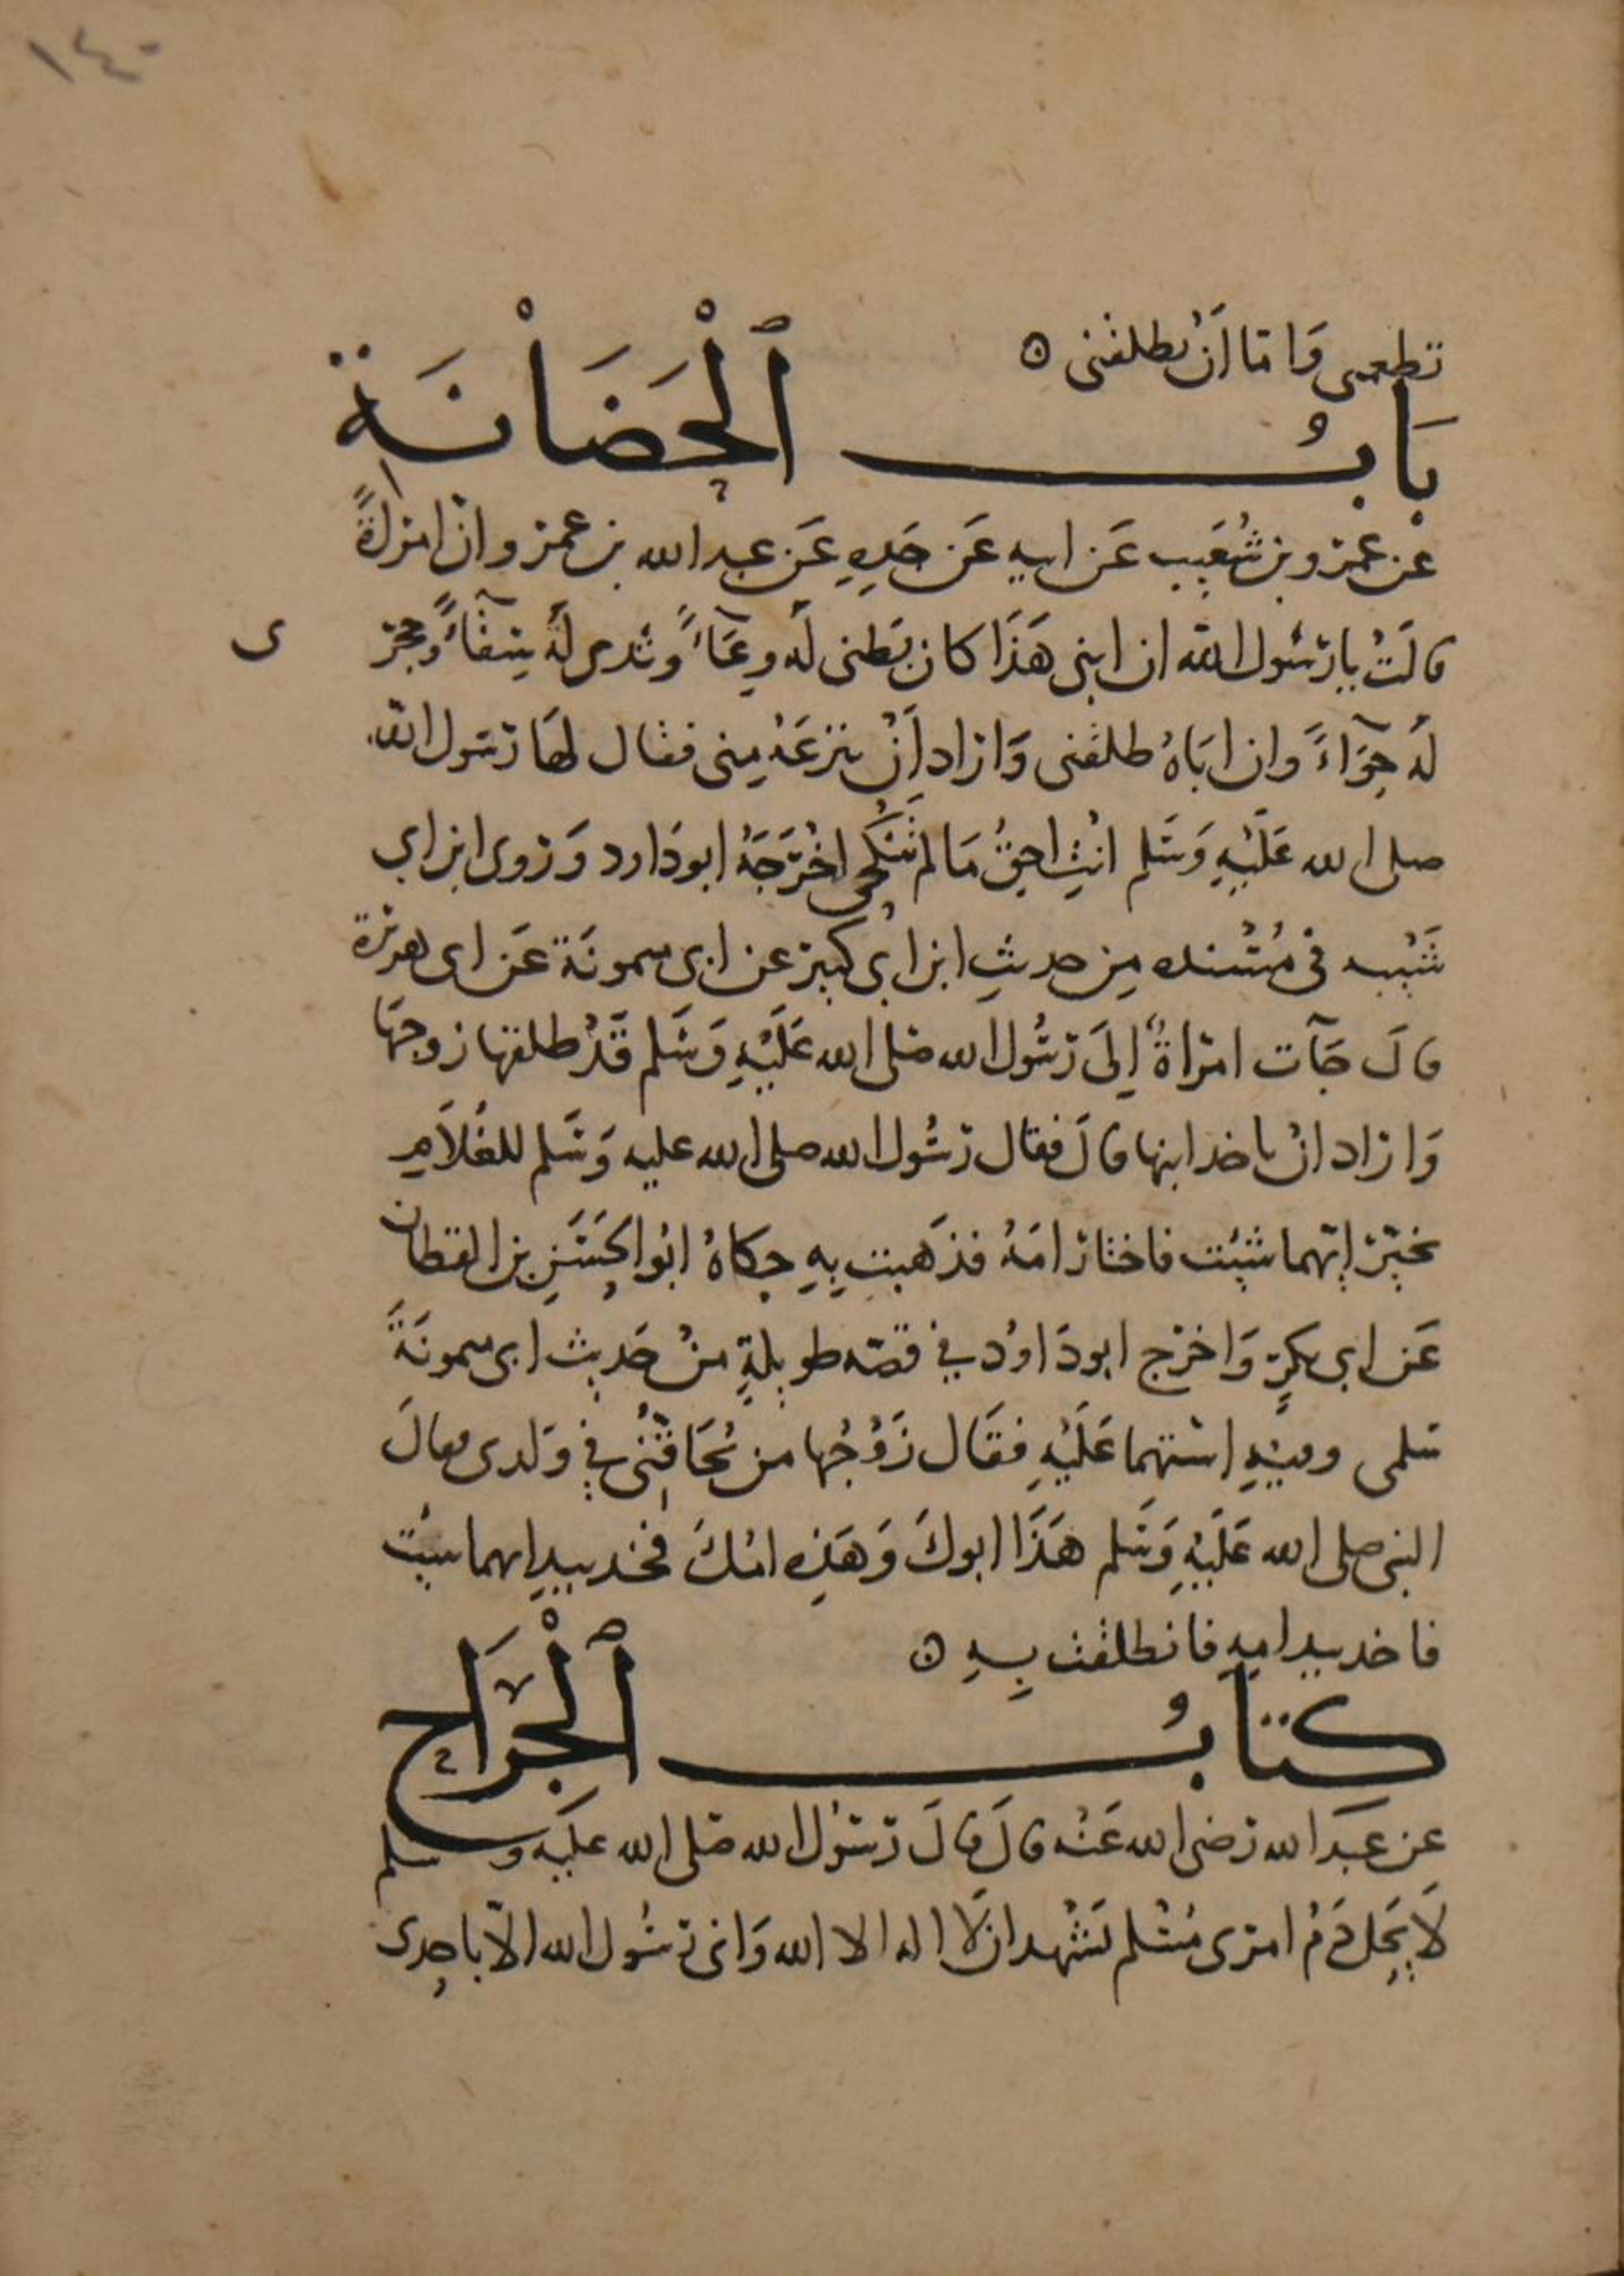 ١٤٠
تطعمنى وَامّا اَنْ تطلقنى ه
بَابُ اَلْحَضَانَةِ
عَن عَمْرو بن شُعَيب عَن ابيهِ عَن جَدِهِ عَن عبد الله بن عمرو انّ امرأةً
قالَتْ يا رسُول الله ان ابنى هَذَا كان بَطنى لَه وِعَآءً وثدى لَهُ سِقَآءً وحجر
ى
لَه حِوَآءً وان ابَاهُ طلقنى وَاراد اَنْ ينزعَهُ مِنى فقال لهَا رسُول الله
صلى الله عَلَيْهِ وَسَلم انتِ احقُ مَا لم تَنْكُحى اخْرَجَهُ ابو دَاود وَروى ابن ابي
شَيْبه فى مُسْنده مِن حديثِ ابن ابى كبير عن ابى ميمونَة عَن ابى هريرة
قالَ جَآت امرَاةٌ اِلَى رَسُول الله صَلى الله عَلَيْهِ وَسَلم قَدْ طلقها زوجهَا
وَاراد انْ ياخد ابنها قالَ فقال رَسُول الله صلى الله عليه وَسَلم للغُلاَمِ
تخيّرْ اِيّهما شيْت فاختار امَهُ فذَهبت بِهِ حِكاهُ ابُو الحَسَنِ بن القطان
عَن ابى بكرٍ وَاخرج ابو دَاوُد فِي قصّه طويلةٍ منْ حَديث ابى ميمونَةَ
سلمى وفيهِ استهما عَلَيْهِ فقَال زَوْجُها من يُحَاقّنى فِي وَلدى فقالَ
النبى صلى الله عَلَيْهِ وَسَلم هَذَا ابوكَ وَهَذِه امُكَ فخد بيدِ ايهما شيْت
فاخد بيد امِهِ فانطلقت بِهِ ه
كِتَابُ اَلْجِرَاحِ
عن عبَد الله رَضى الله عَنْه قالَ قالَ رَسُولُ الله صَلى الله عليَه وسلم
لَا يَحِل دَمُ امرى مُسْلم يَشْهد ان لَا اله الا الله وَانى رَسُول الله الاّ باحِدى